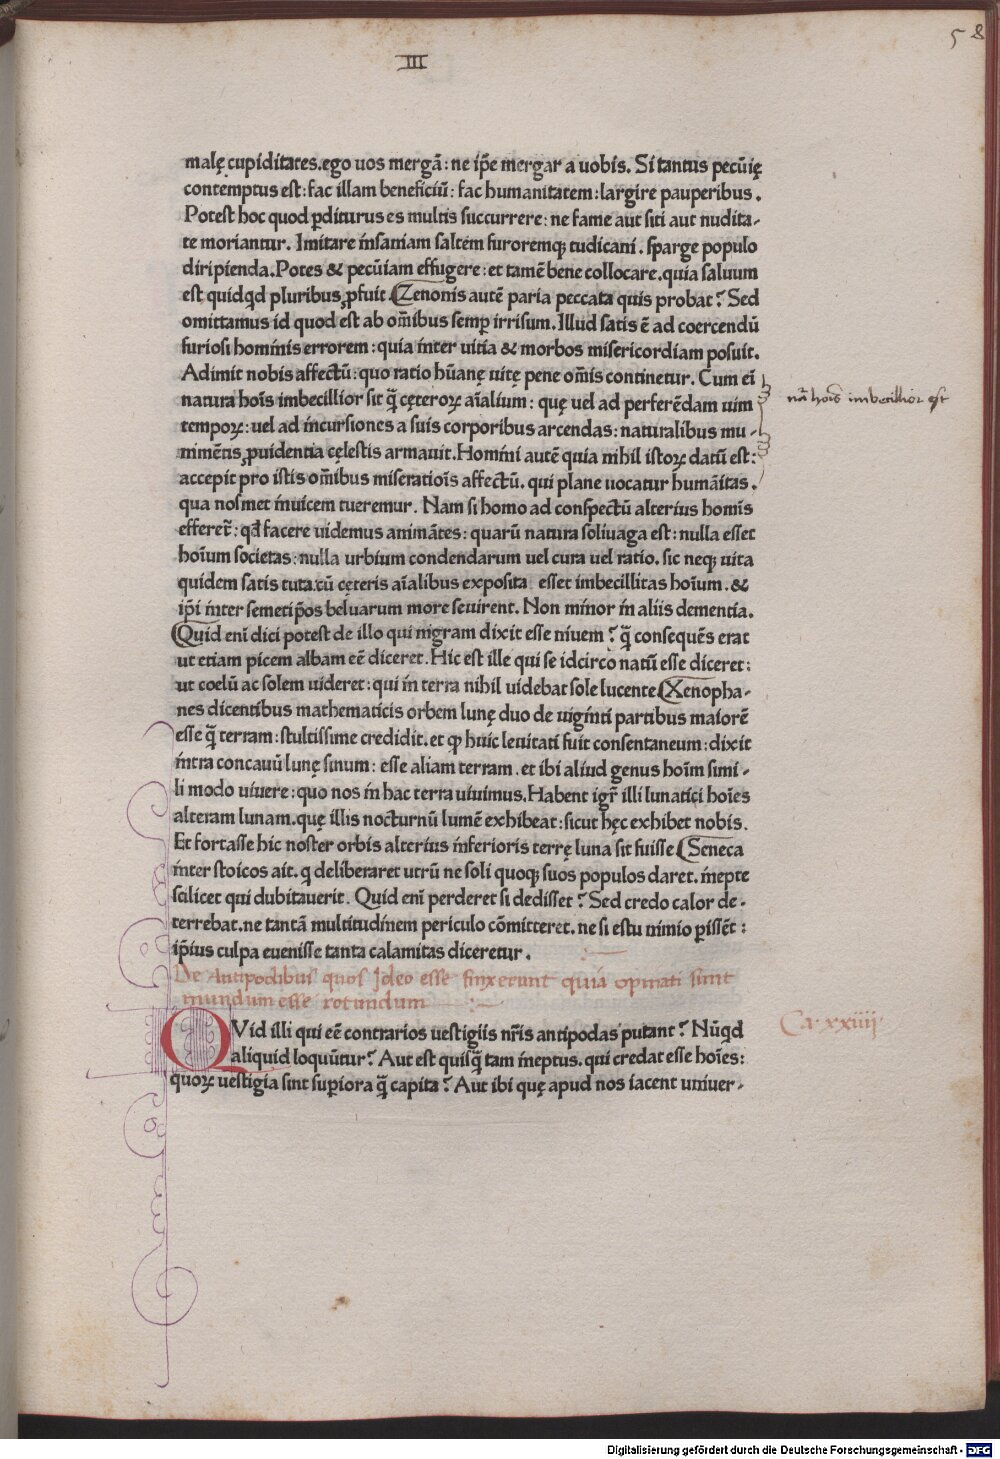 58
III
malę cupiditates.ego uos mergā: ne ip̄e mergar a uobis. Si tantus pecūię
contemptus est: fac illam beneficiū: fac humanitatem: largire pauperibus.
Potest hoc quod ꝑditurus es multis succurrere: ne fame aut siti aut nudita-
te moriantur. Imitare insaniam saltem furoremqꝫ tudicani. sparge populo
diripienda. Potes & pecūiam effugere: et tamē bene collocare. quia saluum
est quidqd pluribus ꝓfuit. Zenonis autē paria peccata quis probat? Sed
omittamus id quod est ab om̄ibus semꝑ irrisum. Illud satis ē ad coercendū
furiosi hominis errorem: quia inter uitia & morbos misericordiam posuit.
Adimit nobis affectū: quo ratio hūanę uitę pene om̄is continetur. Cum ei
natura hoīs imbecillior sit q̄ cęteroꝝ aīalium: quę uel ad perferēdam uim
tempoꝝ: uel ad incursiones a suis corporibus arcendas: naturalibus mu-
nimētis ꝓuidentia cęlestis armauit. Homini autē quia nihil istoꝝ datū est:
accepit pro istis om̄ibus miseratiōis affectū. qui plane uocatur humāitas.
qua nosmet inuicem tueremur. Nam si homo ad conspectū alterius homīs
efferet̄: qd̄ facere uidemus animātes: quarū natura soliuaga est: nulla esset
hoīum societas: nulla urbium condendarum uel cura uel ratio. sic neqꝫ uita
quidem satis tuta. cū cęteris aīalibus exposita esset imbecillitas hoīum. &
ip̄i inter semetip̄os beluarum more seuirent. Non minor in aliis dementia.
Quid enī dici potest de illo qui nigram dixit esse niuem? q̄ consequēs erat
ut etiam picem albam eē diceret. Hic est ille qui se idcirco natū esse diceret:
ut coelū ac solem uideret: qui in terra nihil uidebat sole lucente. Xenopha-
nes dicentibus mathematicis orbem lunę duo de uiginti partibus maiorē
esse q̄ terram: stultissime credidit. et ꝙ huic leuitati fuit consentaneum: dixit
intra concauū lunę sinum: esse aliam terram. et ibi aliud genus hoīm simi-
li modo uiuere: quo nos in hac terra uiuimus. Habent igr̄ illi lunatici hoīes
alteram lunam. quę illis nocturnū lumē exhibeat: sicut hęc exhibet nobis.
Et fortasse hic noster orbis alterius inferioris terrę luna sit fuisse. Seneca
inter stoicos ait. q deliberaret utrū ne soli quoqꝫ suos populos daret. inepte
scilicet qui dubitauerit. Quid enī perderet si dedisset? Sed credo calor de-
terrebat. ne tantā multitudinem periculo cōmitteret. ne si estu nimio ꝑissēt:
ip̄ius culpa euenisse tanta calamitas diceretur.
nā hoīs imbecillior est
De Antipodibus quos Ideo esse finxerunt quia opinati sunt
mundum esse rotundum
Ca. xxiiii
QVid illi qui eē contrarios uestigiis nr̄is antipodas putant? Nūqd
aliquid loquūtur? Aut est quisq̄ tam ineptus. qui credat esse hoīes:
quoꝝ uestigia sint suꝑiora q̄ capita? Aut ibi quę apud nos iacent uniuer-
Digitalisierung gefördert durch die Deutsche Forschungsgemeinschaft - DFG